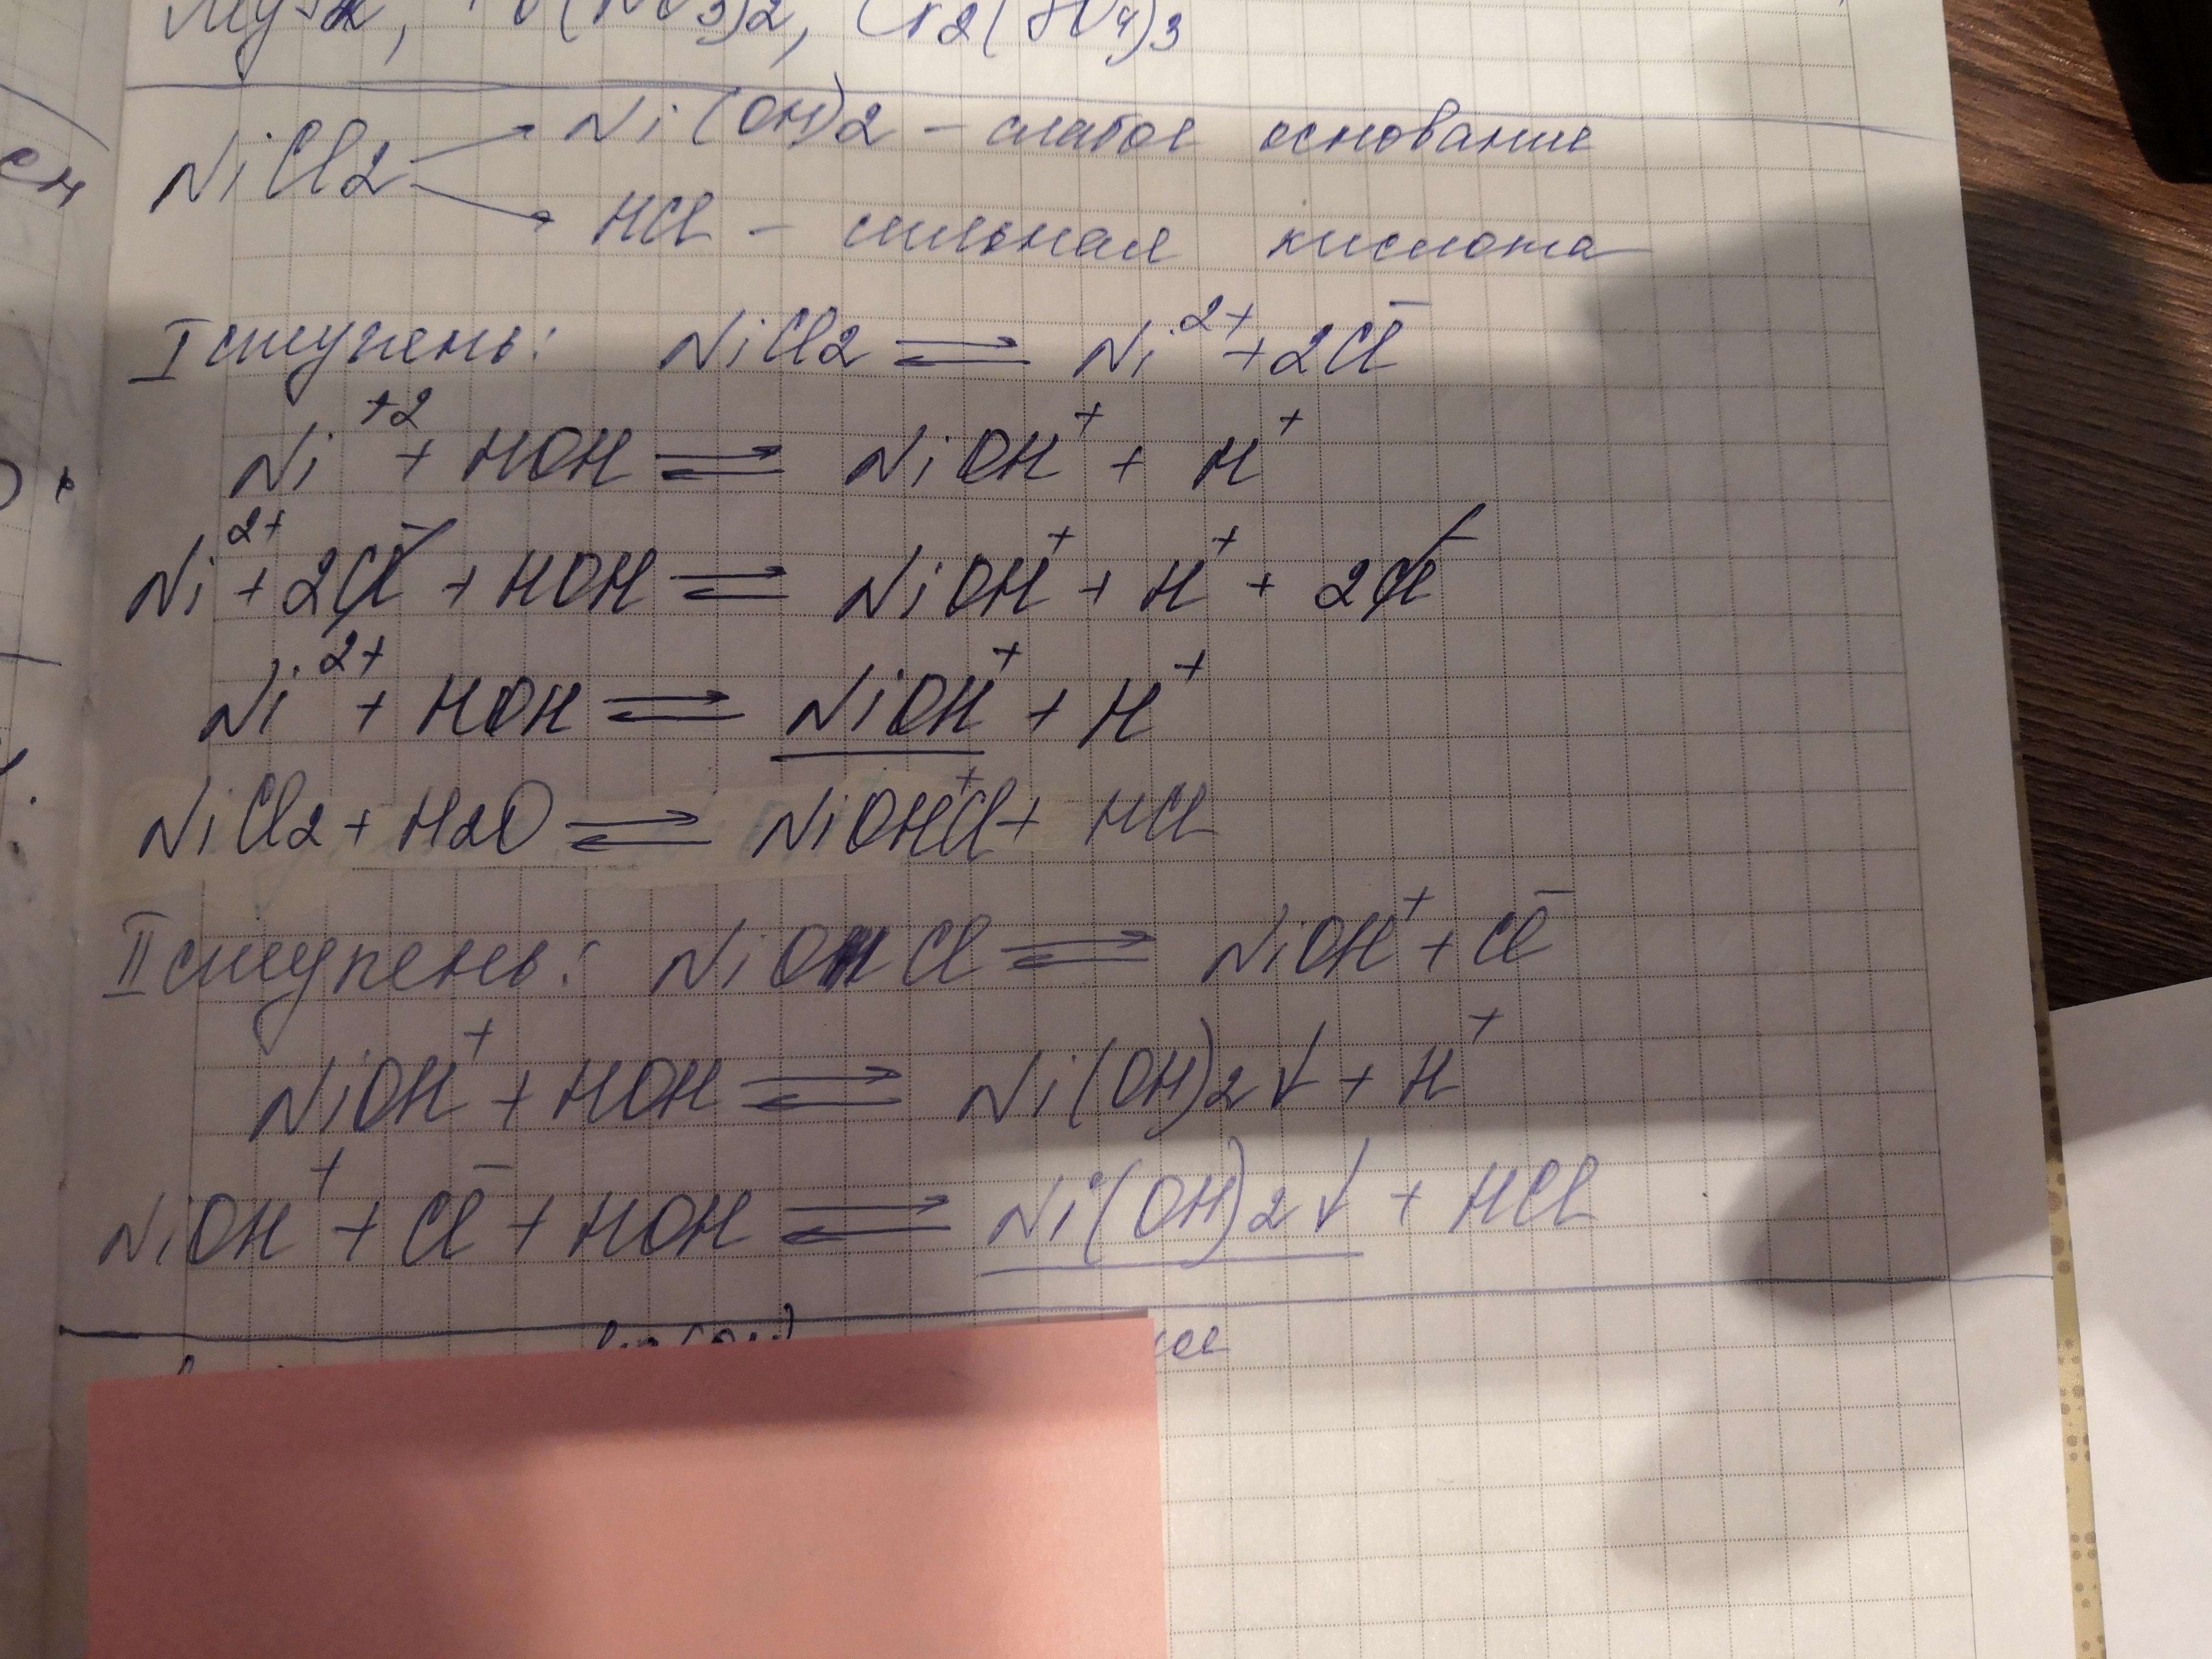 Cr2(SO4)3
NiCl2 → Ni(OH)2 - слабое основание
→ HCl - сильная кислота
I ступень: NiCl2 ⇌ Ni²⁺ + 2Cl⁻
Ni⁺² + HOH ⇌ NiOH⁺ + H⁺
Ni²⁺ + 2Cl⁻ + HOH ⇌ NiOH⁺ + H⁺ + 2Cl⁻
Ni²⁺ + HOH ⇌ NiOH⁺ + H⁺
NiCl2 + H2O ⇌ NiOH⁺Cl + HCl
II ступень: NiOHCl ⇌ NiOH⁺ + Cl⁻
NiOH⁺ + HOH ⇌ Ni(OH)2↓ + H⁺
NiOH⁺ + Cl⁻ + HOH ⇌ Ni(OH)2↓ + HCl